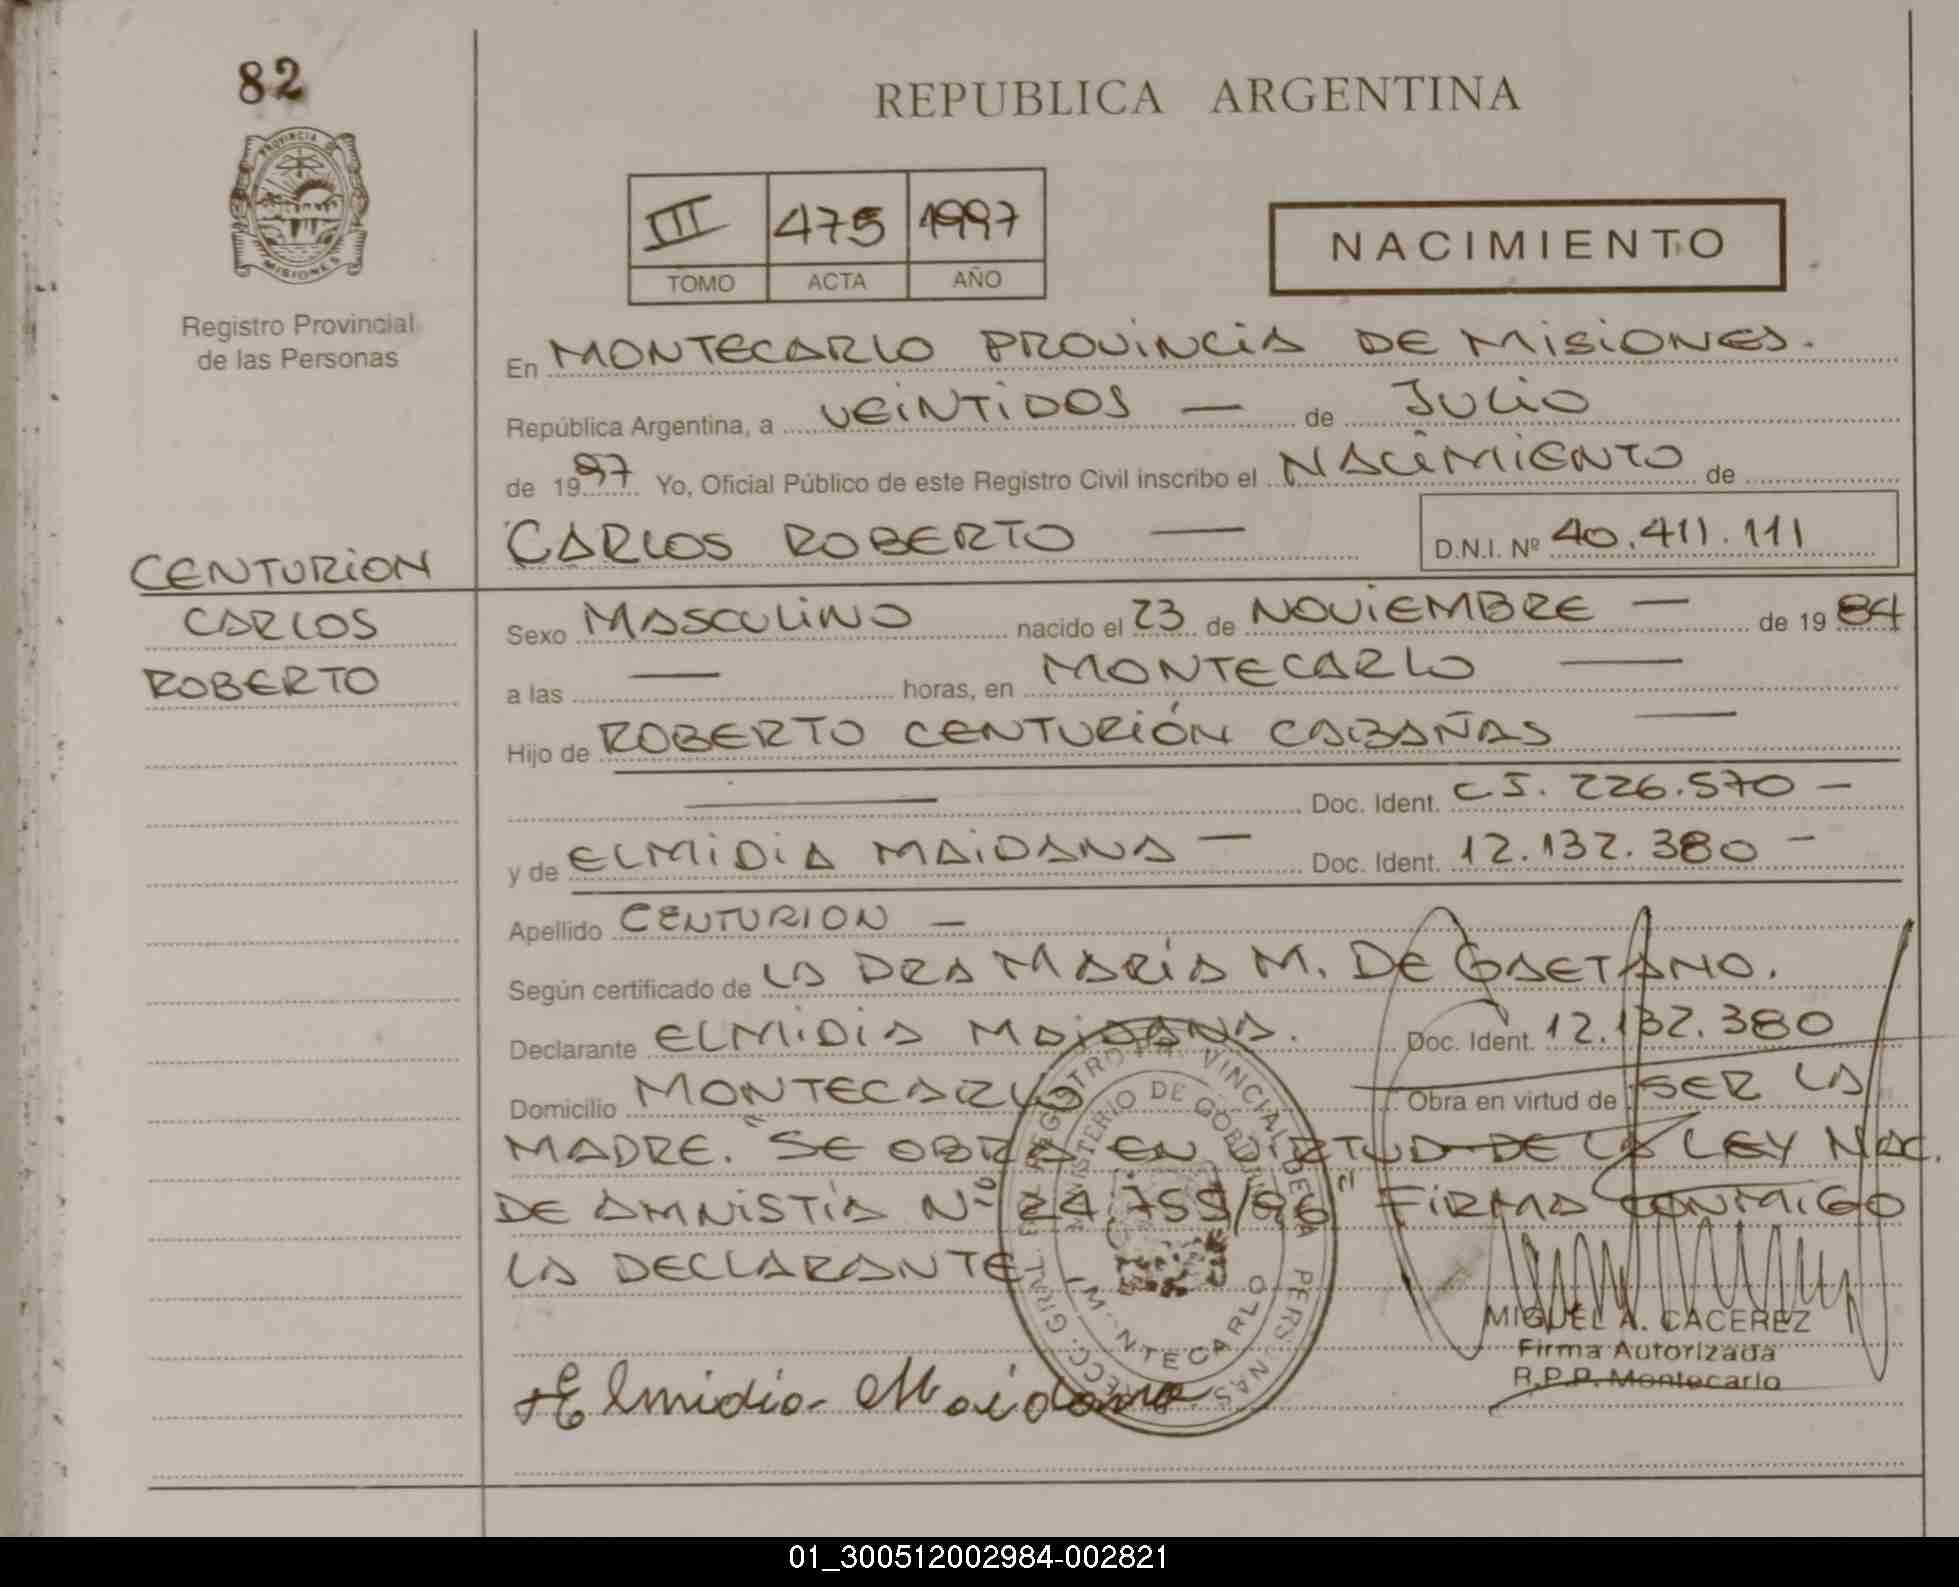 82
REPUBLICA ARGENTINA
PROVINCIA DE
MISIONES
Registro Provincial
de las Personas
III 475 1997
TOMO ACTA AÑO
NACIMIENTO
En MONTECARLO PROVINCIA DE MISIONES.
República Argentina, a VEINTIDOS — de JULIO
de 1997 Yo, Oficial Público de este Registro Civil inscribo el NACIMIENTO de
CARLOS ROBERTO — D.N.I. Nº 40.411.111
CENTURION
CARLOS
ROBERTO
Sexo MASCULINO nacido el 23 de NOVIEMBRE — de 1984
a las — horas, en MONTECARLO —
Hijo de ROBERTO CENTURIÓN CABAÑAS —
— Doc. Ident. C.I. 226.570 —
y de ELMIDIA MAIDANA — Doc. Ident. 12.132.380 —
Apellido CENTURION —
Según certificado de LA DRA MARIA M. DE GAETANO.
Declarante ELMIDIA MAIDANA. Doc. Ident. 12.132.380
Domicilio MONTECARLO Obra en virtud de SER LA
MADRE. "SE OBRA EN VIRTUD DE LA LEY NAC.
DE AMNISTÍA Nº 24.755/96" FIRMA CONMIGO
LA DECLARANTE
MINISTERIO DE
MONTECARLO
MIGUEL A. CACEREZ
Firma Autorizada
R.P.P. Montecarlo
Elmidia Maidana
01_300512002984-002821